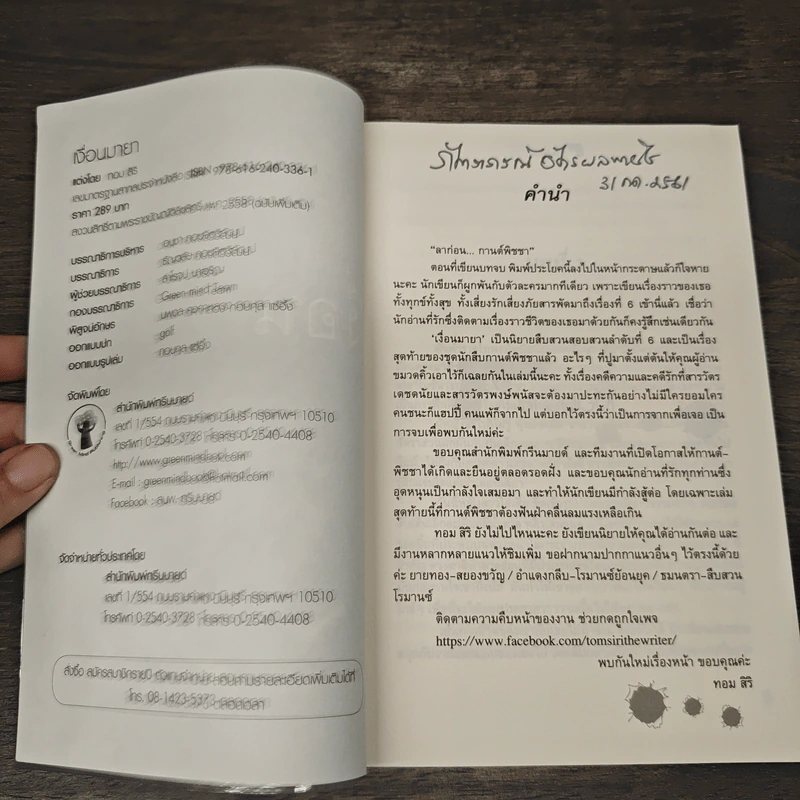 เงื่อนมายา
แต่งโดย ทอม สิริ
เลขมาตรฐานสากลประจำหนังสือ ISBN 978-616-240-336-1
ราคา 289 บาท
สงวนลิขสิทธิ์ตามพระราชบัญญัติลิขสิทธิ์ พ.ศ. 2558 (ฉบับเพิ่มเติม)
บรรณาธิการบริหาร
บรรณาธิการ
ผู้ช่วยบรรณาธิการ
กองบรรณาธิการ Green mind Team
พิสูจน์อักษร
ออกแบบปก golf
ออกแบบรูปเล่ม
จัดพิมพ์โดย
สำนักพิมพ์กรีนมายด์
เลขที่ 1/554 กรุงเทพฯ 10510
โทรศัพท์ 0-2540-3728 โทรสาร 0-2540-4408
http://www.greenmindbook.com
E-mail : greenmindbook@hotmail.com
Facebook : สนพ. กรีนมายด์
จัดจำหน่ายทั่วประเทศโดย
สำนักพิมพ์กรีนมายด์
เลขที่ 1/554 กรุงเทพฯ 10510
โทรศัพท์ 0-2540-3728 โทรสาร 0-2540-4408
สั่งซื้อ สมัครสมาชิกรายปี สอบถามรายละเอียดเพิ่มเติมได้ที่
โทร. 08-1423-5377 ตลอดเวลา
31 กค. 2561
คำนำ
“ลาก่อน... กานต์พิชชา”
ตอนที่เขียนบทจบ พิมพ์ประโยคนี้ลงไปในหน้ากระดาษแล้วก็ใจหาย
นะคะ นักเขียนก็ผูกพันกับตัวละครมากทีเดียว เพราะเขียนเรื่องราวของเธอ
ทั้งทุกข์ทั้งสุข ทั้งเสี่ยงรักเสี่ยงภัยสารพัดมาถึงเรื่องที่ 6 เข้านี่แล้ว เชื่อว่า
นักอ่านที่รักซึ่งติดตามเรื่องราวชีวิตของเธอมาด้วยกันก็คงรู้สึกเช่นเดียวกัน
‘เงื่อนมายา’ เป็นนิยายสืบสวนสอบสวนลำดับที่ 6 และเป็นเรื่อง
สุดท้ายของชุดนักสืบกานต์พิชชาแล้ว อะไรๆ ที่ปูมาตั้งแต่ต้นให้คุณผู้อ่าน
ขมวดคิ้วเอาไว้ก็เฉลยกันในเล่มนี้นะคะ ทั้งเรื่องคดีความและคดีรักที่สารวัตร
เดชดนัยและสารวัตรพงษ์พนัสจะต้องมาปะทะกันอย่างไม่มีใครยอมใคร
คนชนะก็แฮปปี้ คนแพ้ก็จากไป แต่บอกไว้ตรงนี้ว่าเป็นการจากเพื่อเจอ เป็น
การจบเพื่อพบกันใหม่ค่ะ
ขอบคุณสำนักพิมพ์กรีนมายด์ และทีมงานที่เปิดโอกาสให้กานต์-
พิชชาได้เกิดและยืนอยู่ตลอดรอดฝั่ง และขอบคุณนักอ่านที่รักทุกท่านซึ่ง
อุดหนุนเป็นกำลังใจเสมอมา และทำให้นักเขียนมีกำลังสู้ต่อ โดยเฉพาะเล่ม
สุดท้ายนี้ที่กานต์พิชชาต้องฟันฝ่าคลื่นลมแรงเหลือเกิน
ทอม สิริ ยังไม่ไปไหนนะคะ ยังเขียนนิยายให้คุณได้อ่านกันต่อ และ
มีงานหลากหลายแนวให้ชิมเพิ่ม ขอฝากนามปากกาแนวอื่นๆ ไว้ตรงนี้ด้วย
ค่ะ ยายทอง-สยองขวัญ / อำแดงกลีบ-โรมานซ์ย้อนยุค / ธมนตรา-สืบสวน
โรมานซ์
ติดตามความคืบหน้าของงาน ช่วยกดถูกใจเพจ
https://www.facebook.com/tomsirithewriter/
พบกันใหม่เรื่องหน้า ขอบคุณค่ะ
ทอม สิริ